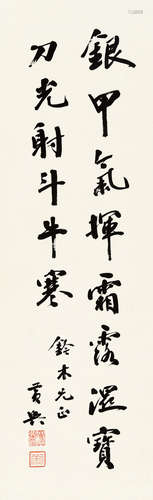 銀甲氣揮霜露濕寶
刀光射斗牛寒
鈴木先正
黃興